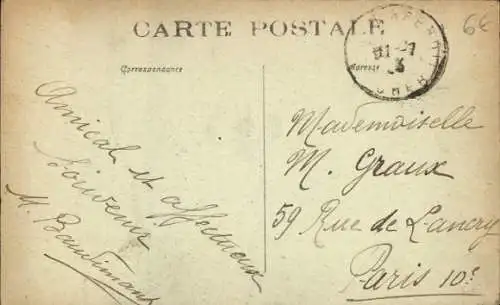 CARTE POSTALE
6€
Correspondance
Adresse
CHER
Amical et affectueux
Souvenir
M.
Mademoiselle
M. Graux
59 Rue de Lancry
Paris 10e